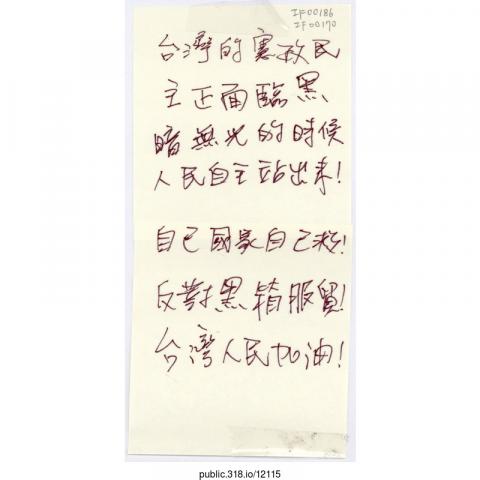 IF00186
IF00170
台灣的憲政民
主正面臨黑
暗無光的時候
人民自主站出來!
自己國家自己救!
反對黑箱服貿!
台灣人民加油!
public.318.io/12115